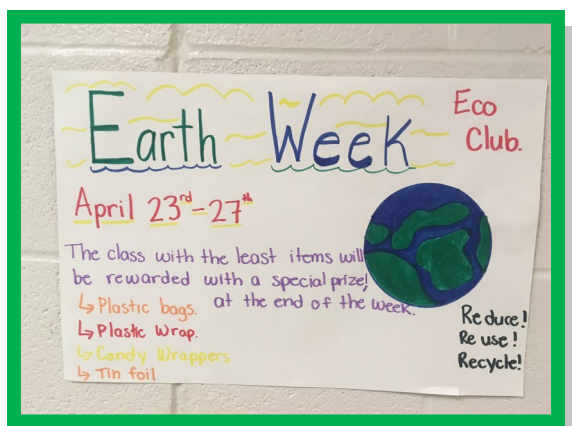 Earth Week
Eco
Club.
April 23rd-27th
The class with the least items will
be rewarded with a special prize!
at the end of the week.
↳ Plastic bags.
↳ Plastic Wrap.
↳ Candy Wrappers
↳ Tin foil
Reduce!
Re use!
Recycle!